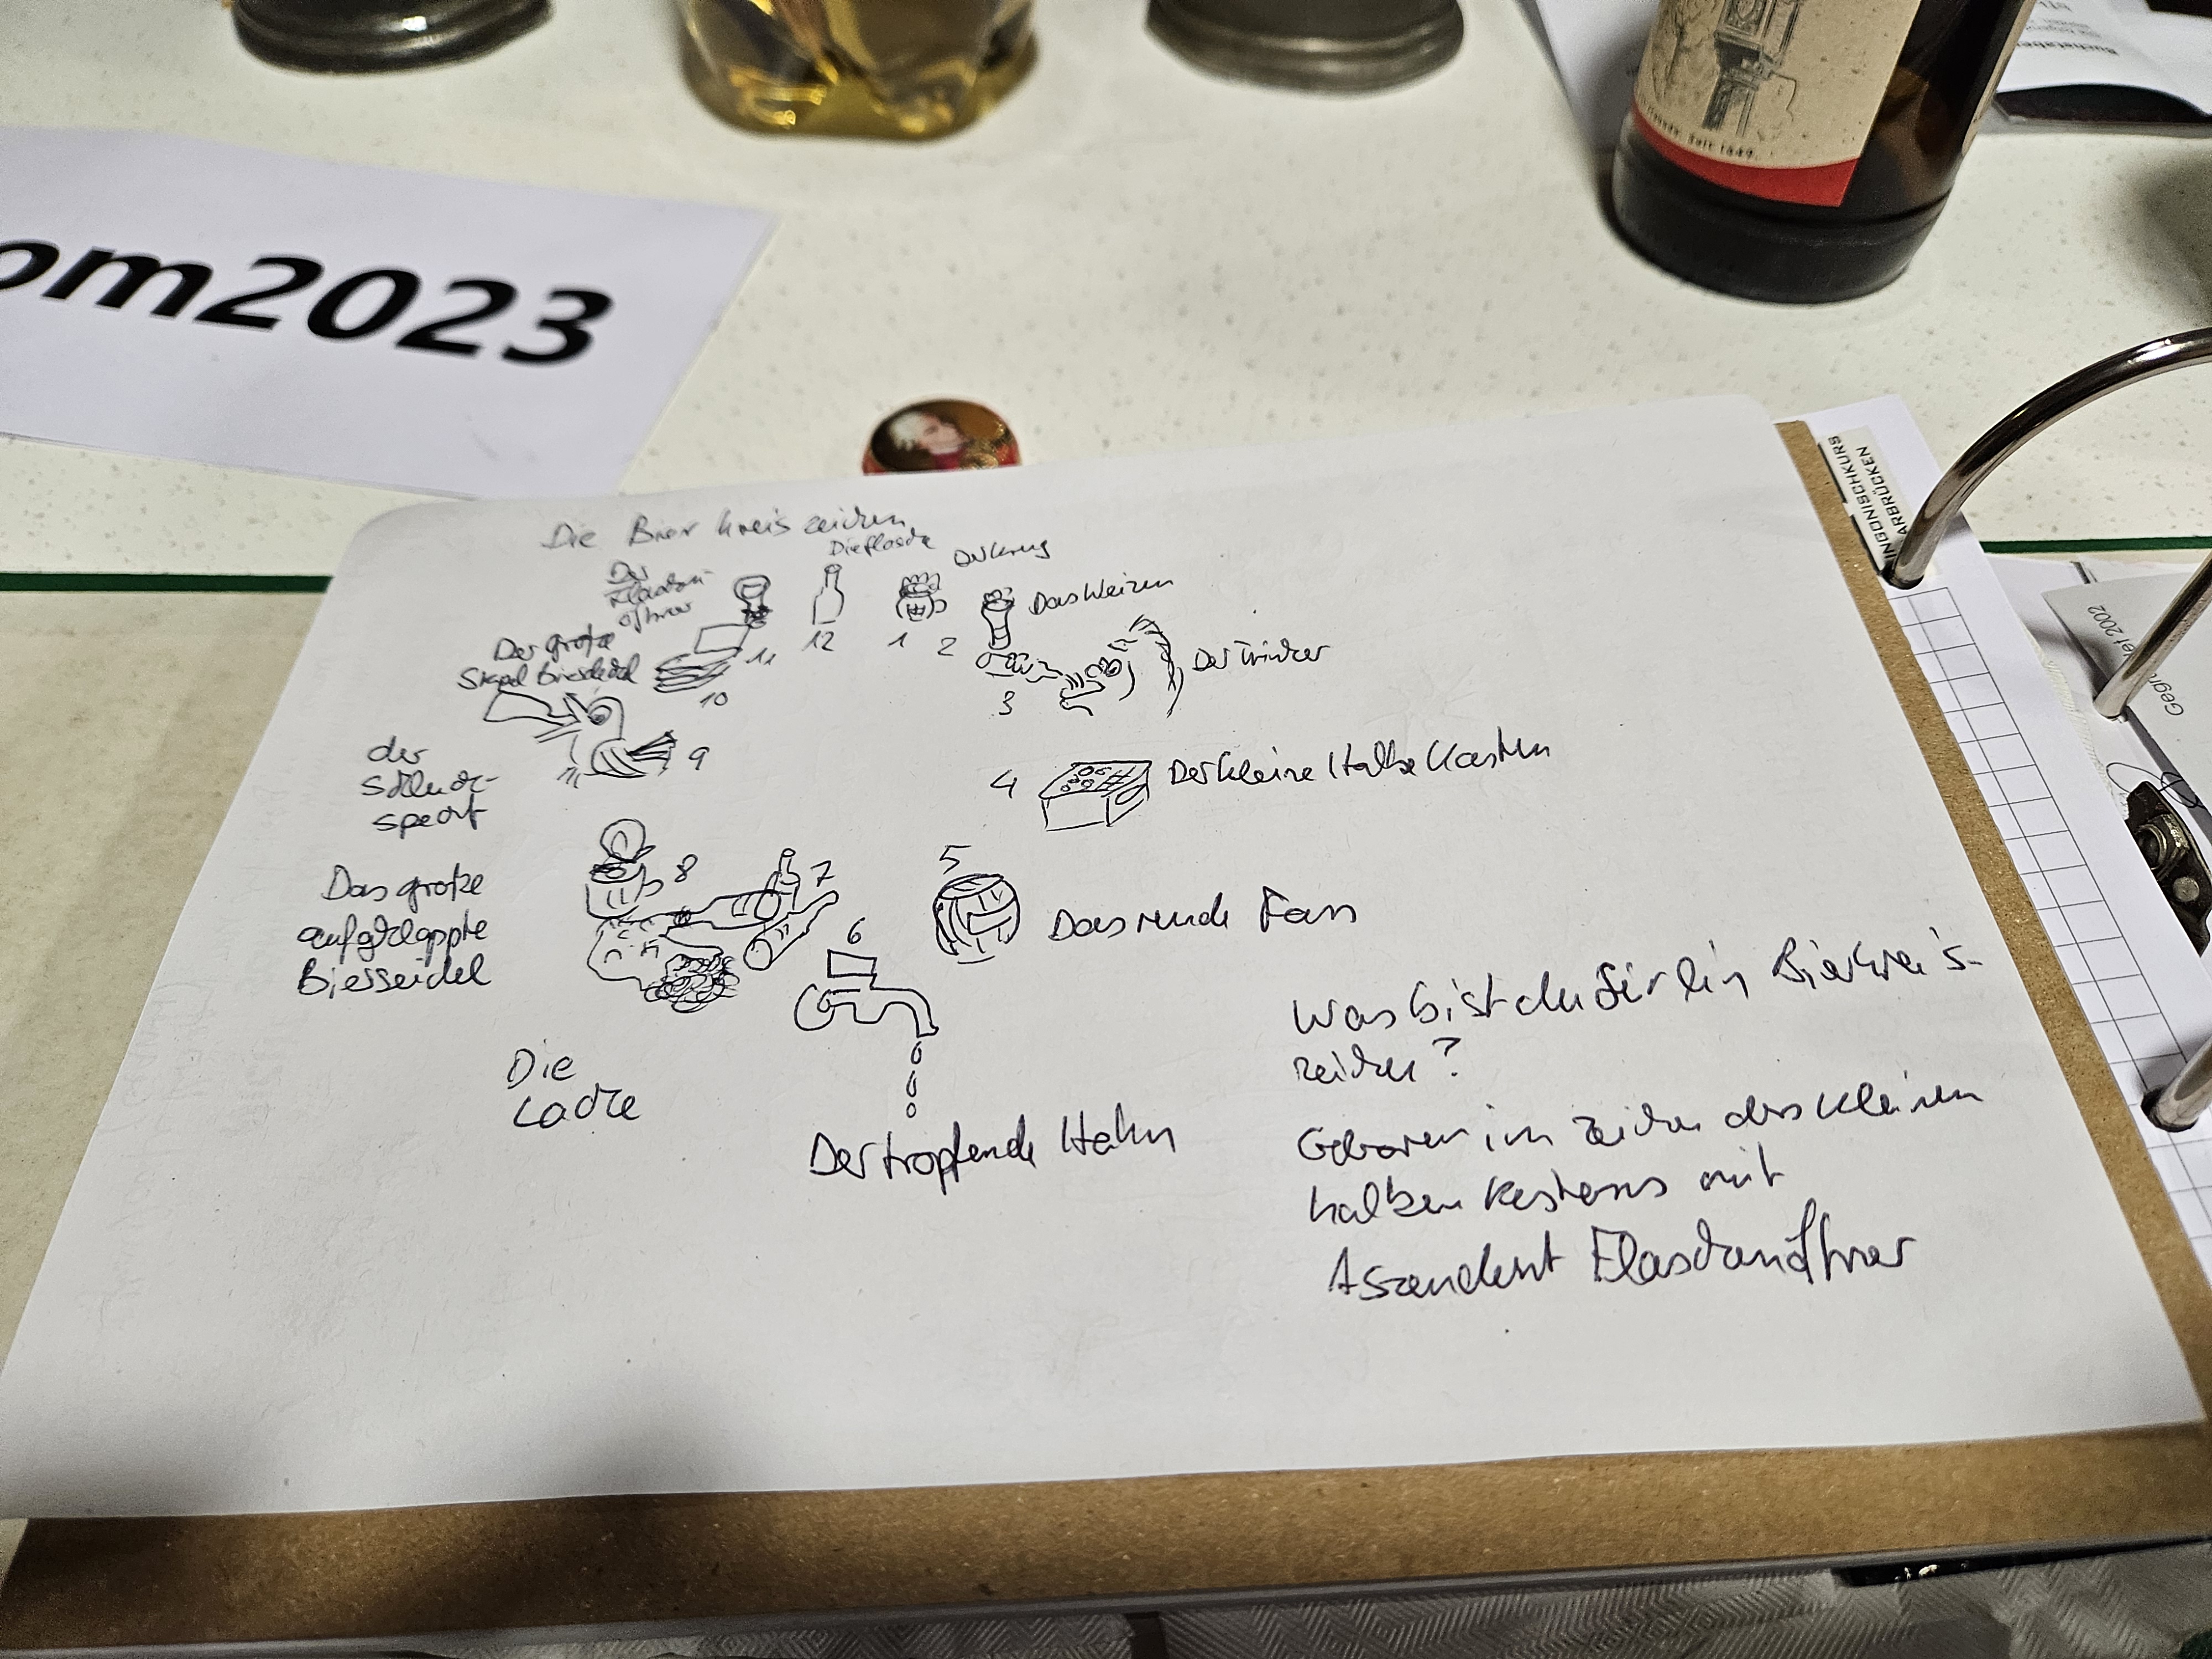 om2023
Seit 1849.
INGONISCHKURS
ARBRÜCKEN
Nef 2002
Gegr
Die Bierkreiszeichen
Die Flasche
Der Krug
Der
Flaschen
öffner
12
1
2
Das Weizen
11
Der große
Stapel Bierdeckel
10
3
Der Trinker
der
Schluck-
specht
9
4
Der kleine Halbe Kasten
Das große
aufgeklappte
Bierseidel
8
7
5
Das runde Fass
6
Die
Lache
Der tropfende Hahn
Was bist du für ein Bierkreis-
zeichen?
Geboren im Zeichen des kleinen
halben Kastens mit
Aszendent Flaschenöffner